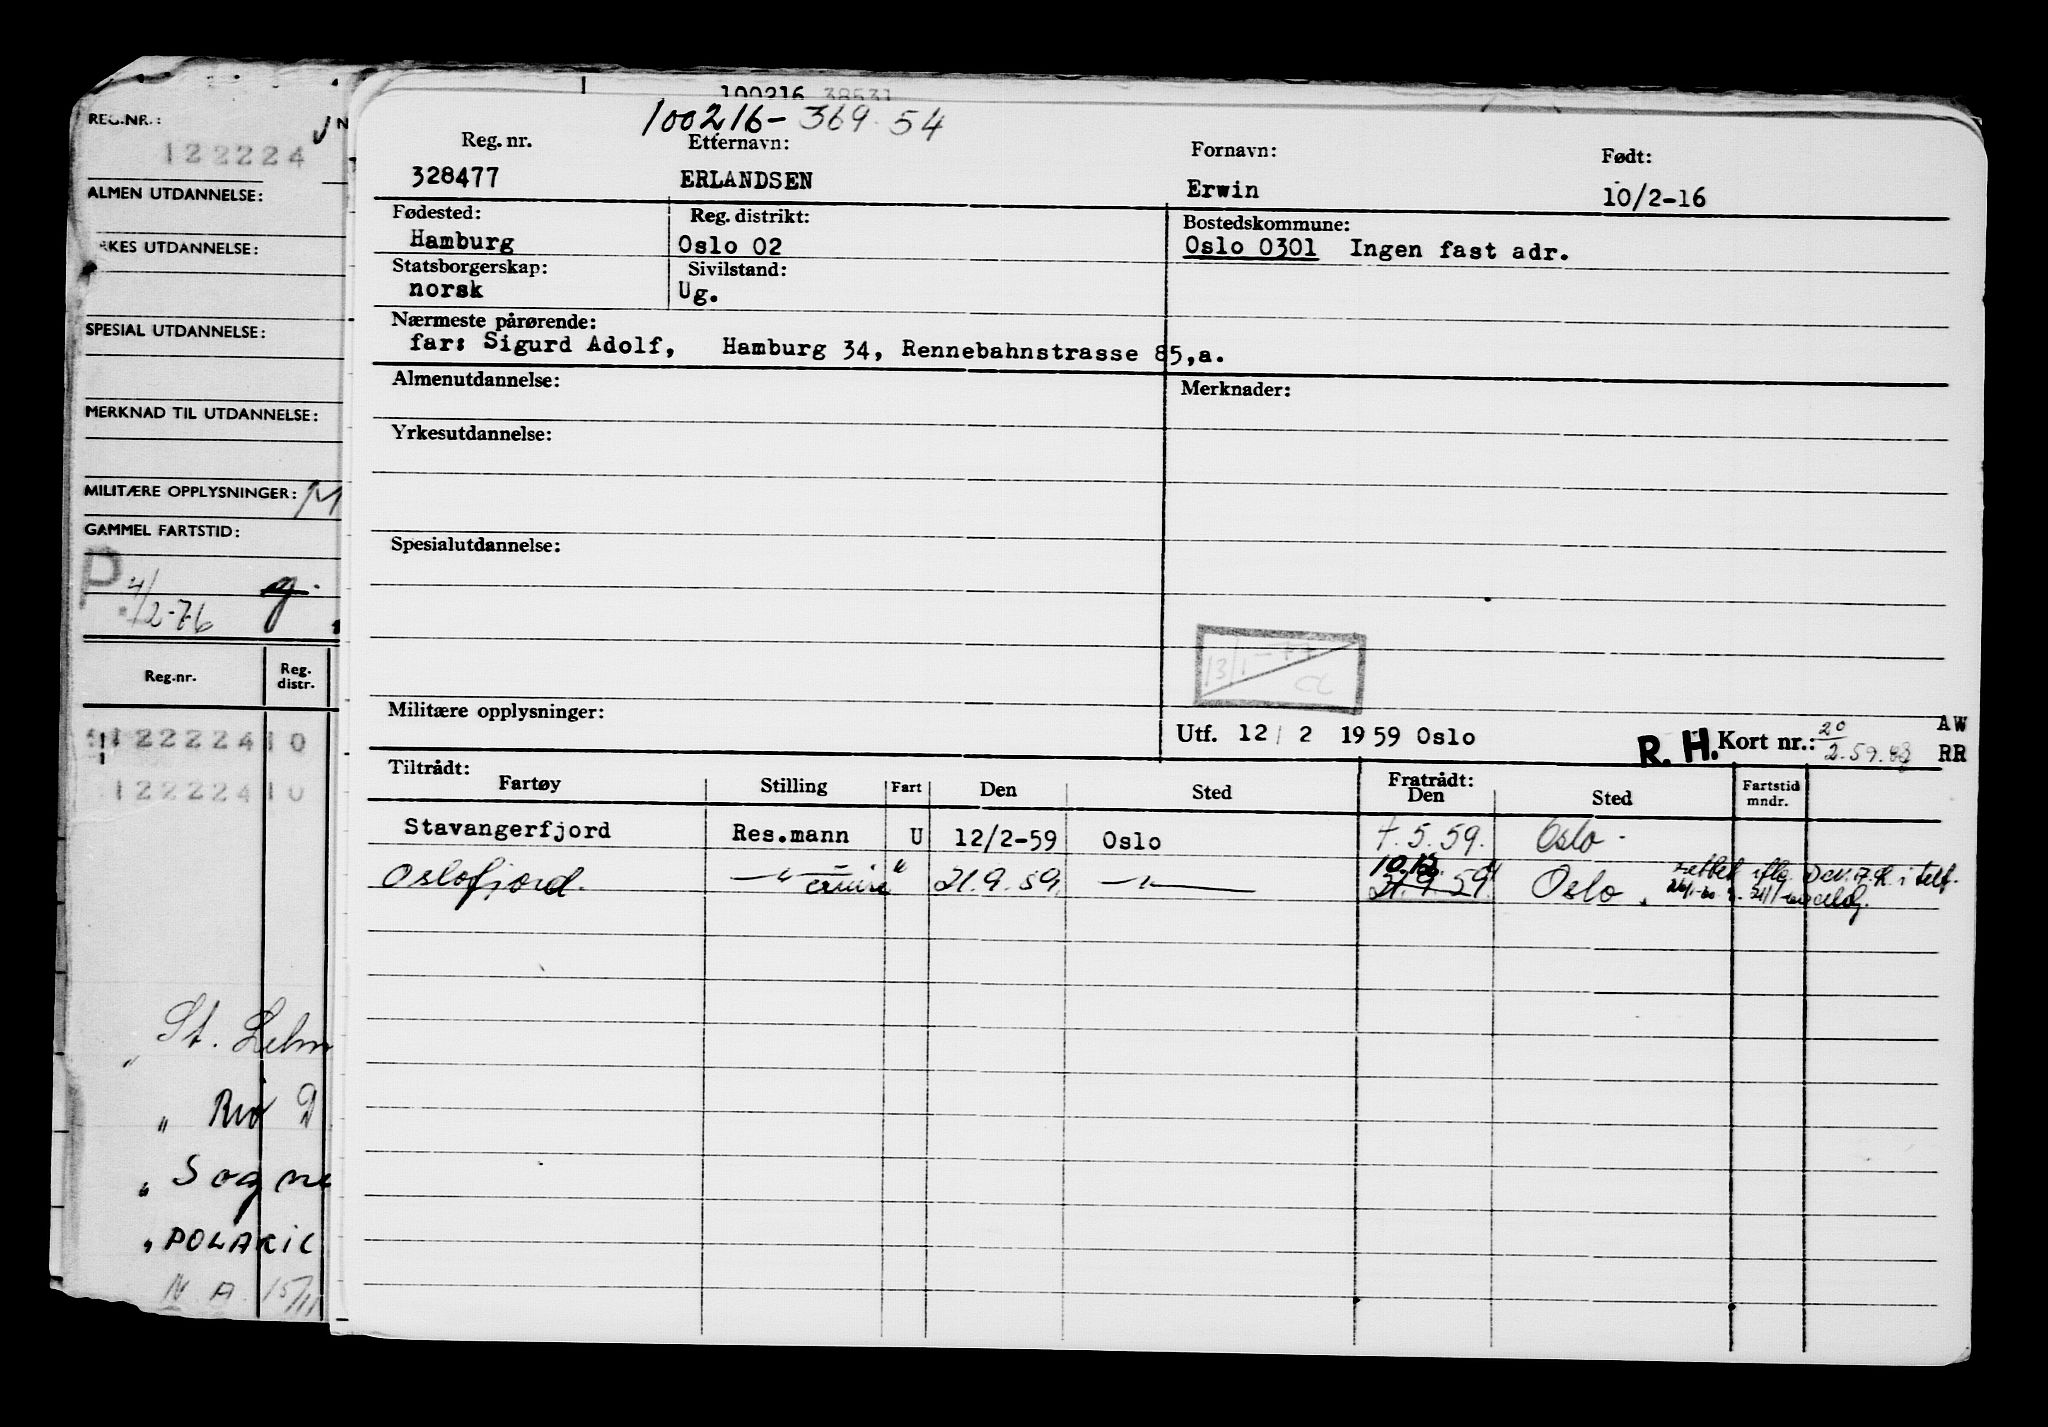 100216 38531
100216- 369.54
Reg. nr. Etternavn: Fornavn: Født:
328477 ERLANDSEN Erwin 10/2-16
Fødested: Reg. distrikt: Bostedskommune:
Hamburg Oslo 02 Oslo 0301 Ingen fast adr.
Statsborgerskap: Sivilstand:
norsk Ug.
Nærmeste pårørende:
far: Sigurd Adolf, Hamburg 34, Rennebahnstrasse 85,a.
Almenutdannelse: Merknader:
Yrkesutdannelse:
Spesialutdannelse:
13/1-77
Militære opplysninger:
Utf. 12/2 1959 Oslo R. H. Kort nr.: 20/2.59. AW RR
Tiltrådt: Fratrådt:
Fartøy Stilling Fart Den Sted Den Sted Fartstid mndr.
Stavangerfjord Res.mann U 12/2-59 Oslo 7.5.59. Oslo -
Oslofjord. —"— cruise " 21.9.59. —"— 10.12. 21.9.59. Oslo.
REG.NR.: N
122224
ALMEN UTDANNELSE:
KES UTDANNELSE:
SPESIAL UTDANNELSE:
MERKNAD TIL UTDANNELSE:
MILITÆRE OPPLYSNINGER:
GAMMEL FARTSTID:
P 4/2-76 g.
Reg.nr. Reg. distr.
122224 10
122224 10
St. Helm
" Rio D
" Sogne
" POLARIC
N A. 15/11